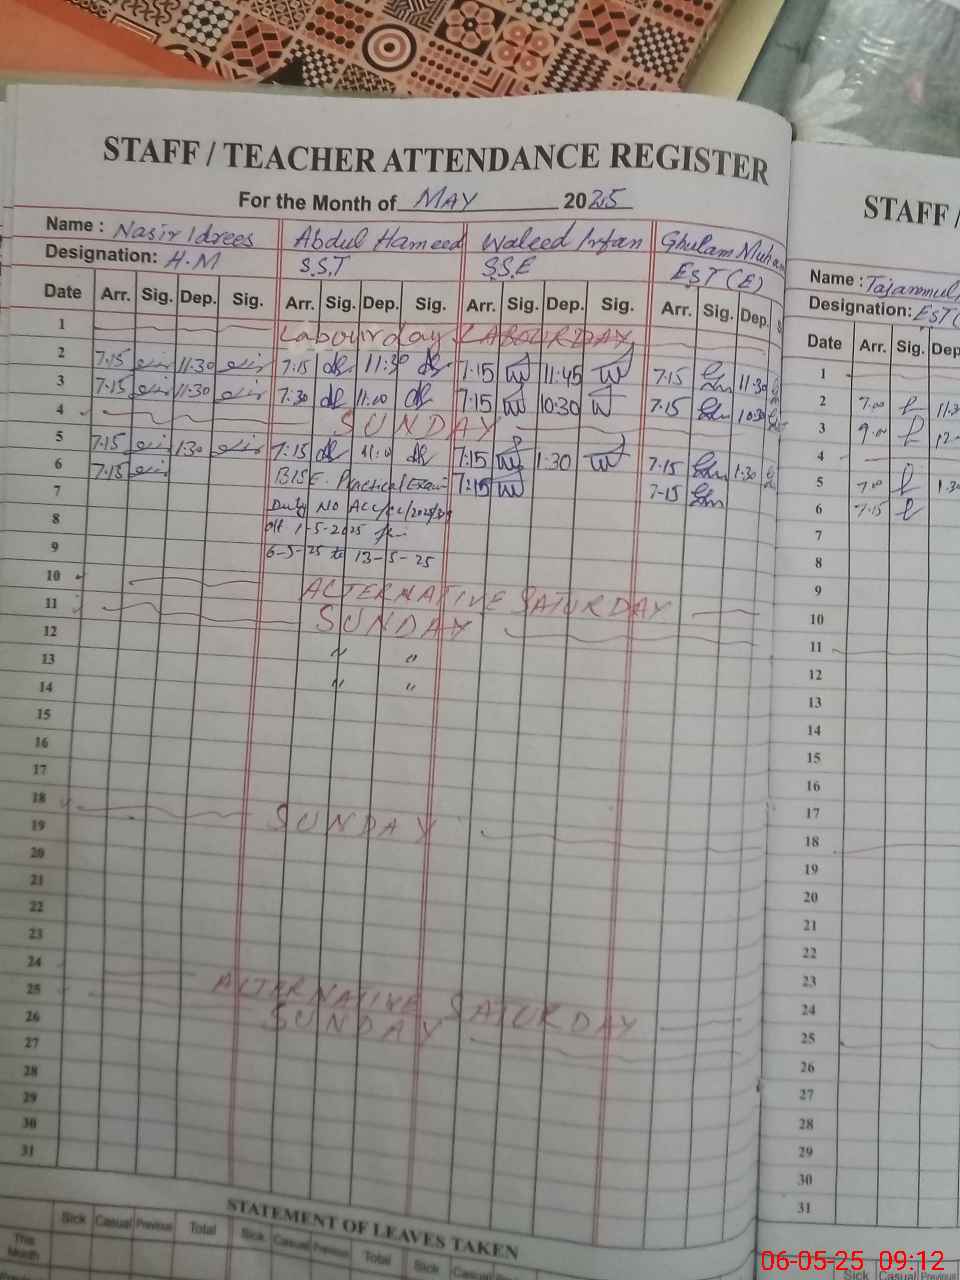 STAFF / TEACHER ATTENDANCE REGISTER
For the Month of MAY 2025
Name : Nasir Idrees Abdul Hameed Waleed Irfan Ghulam Muham
Designation: H.M S.S.T S.S.E EST (E)
Date Arr. Sig. Dep. Sig. Arr. Sig. Dep. Sig. Arr. Sig. Dep. Sig. Arr. Sig. Dep. S
1 Labour day LABOUR DAY
2 7:15 11:30 7:15 11:30 7:15 11:45 7:15 11:30
3 7:15 11:30 7:30 11:00 7:15 10:30 7:15 10:30
4 SUNDAY
5 7:15 1:30 7:15 7:15 1:30 7:15 1:30
6 7:15 BISE Practical Exam 7:15 7-15
7 Duty NO
8 1-5-2025
9 6-5-25 to 13-5-25
10 ALTERNATIVE SATURDAY
11 SUNDAY
12
13 " "
14 " "
15
16
17
18 SUNDAY
19
20
21
22
23
24 ALTERNATIVE SATURDAY
25 SUNDAY
26
27
28
29
30
31
STATEMENT OF LEAVES TAKEN
Sick Casual Previous Total Sick Casual Previous Total Sick Casual
This Month
STAFF /
Name : Tajammul
Designation: EST (
Date Arr. Sig. Dep
1
2 7:00 11:3
3 9:00 12
4
5 7:00 1:30
6 7:15
7
8
9
10
11
12
13
14
15
16
17
18
19
20
21
22
23
24
25
26
27
28
29
30
31
Sick Casual Previous
06-05-25 09:12